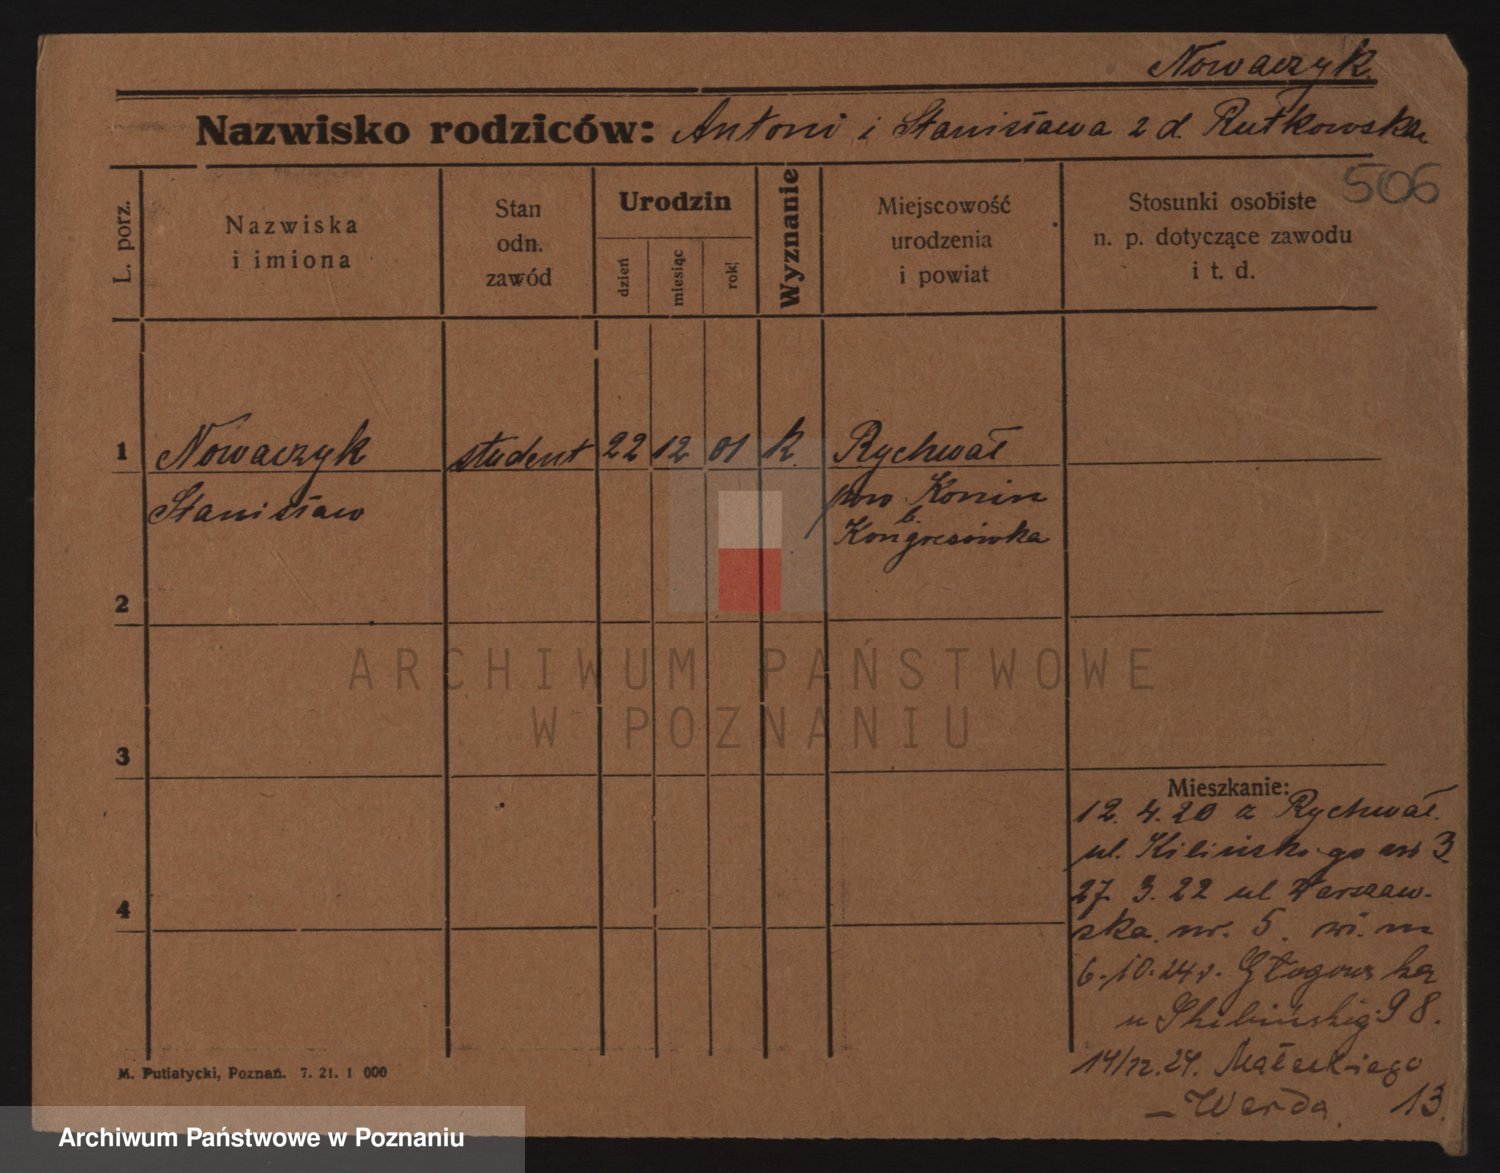 Nowaczyk
Nazwisko rodziców: Antoni i Stanisława z d Rutkowska
506
L. porz.
Nazwiska
i imiona
Stan
odn.
zawód
Urodzin
dzień
miesiąc
rok
Wyznanie
Miejscowość
urodzenia
i powiat
Stosunki osobiste
n. p. dotyczące zawodu
i t. d.
1 Nowaczyk student 22 12 01 k. Rychwał
Stanisław pow Konin
b.
Kongresówka
2
3
Mieszkanie:
12. 4. 20 z Rychwał.
ul. Kilińskiego nr 3
4
27. 3. 22 ul Warszaw-
ska. nr. 5.
6.10.24r. Głogowska
u 98.
14/12.24. Małeckiego
13.
M. Putiatycki, Poznań. 7. 21. 1 000
ARCHIWUM PAŃSTWOWE
W POZNANIU
Archiwum Państwowe w Poznaniu